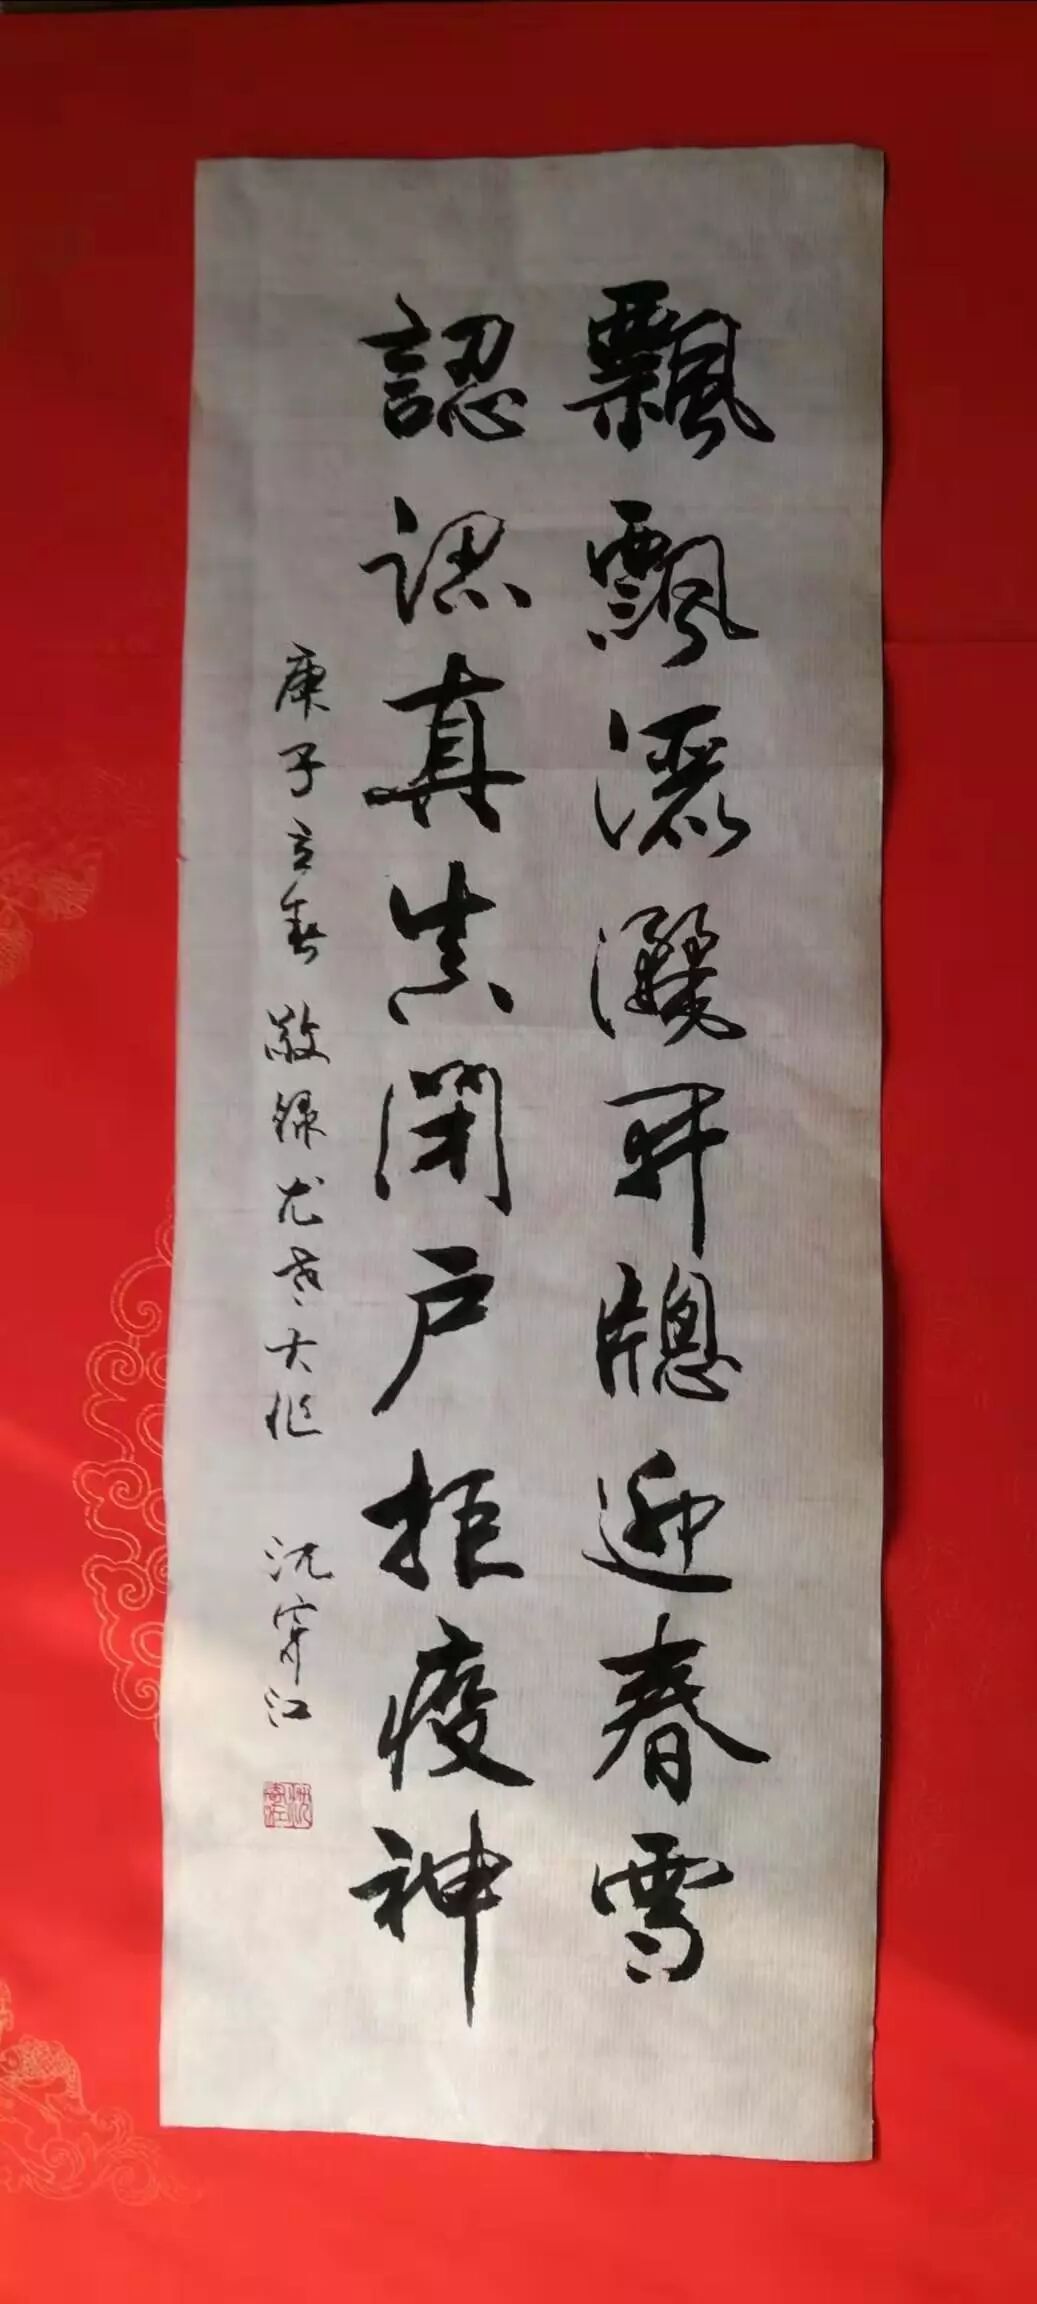 飄飄灑灑开窓迎春雪
認認真真閉户拒疫神
庚子立春 敬録尤老大作 沈寧江